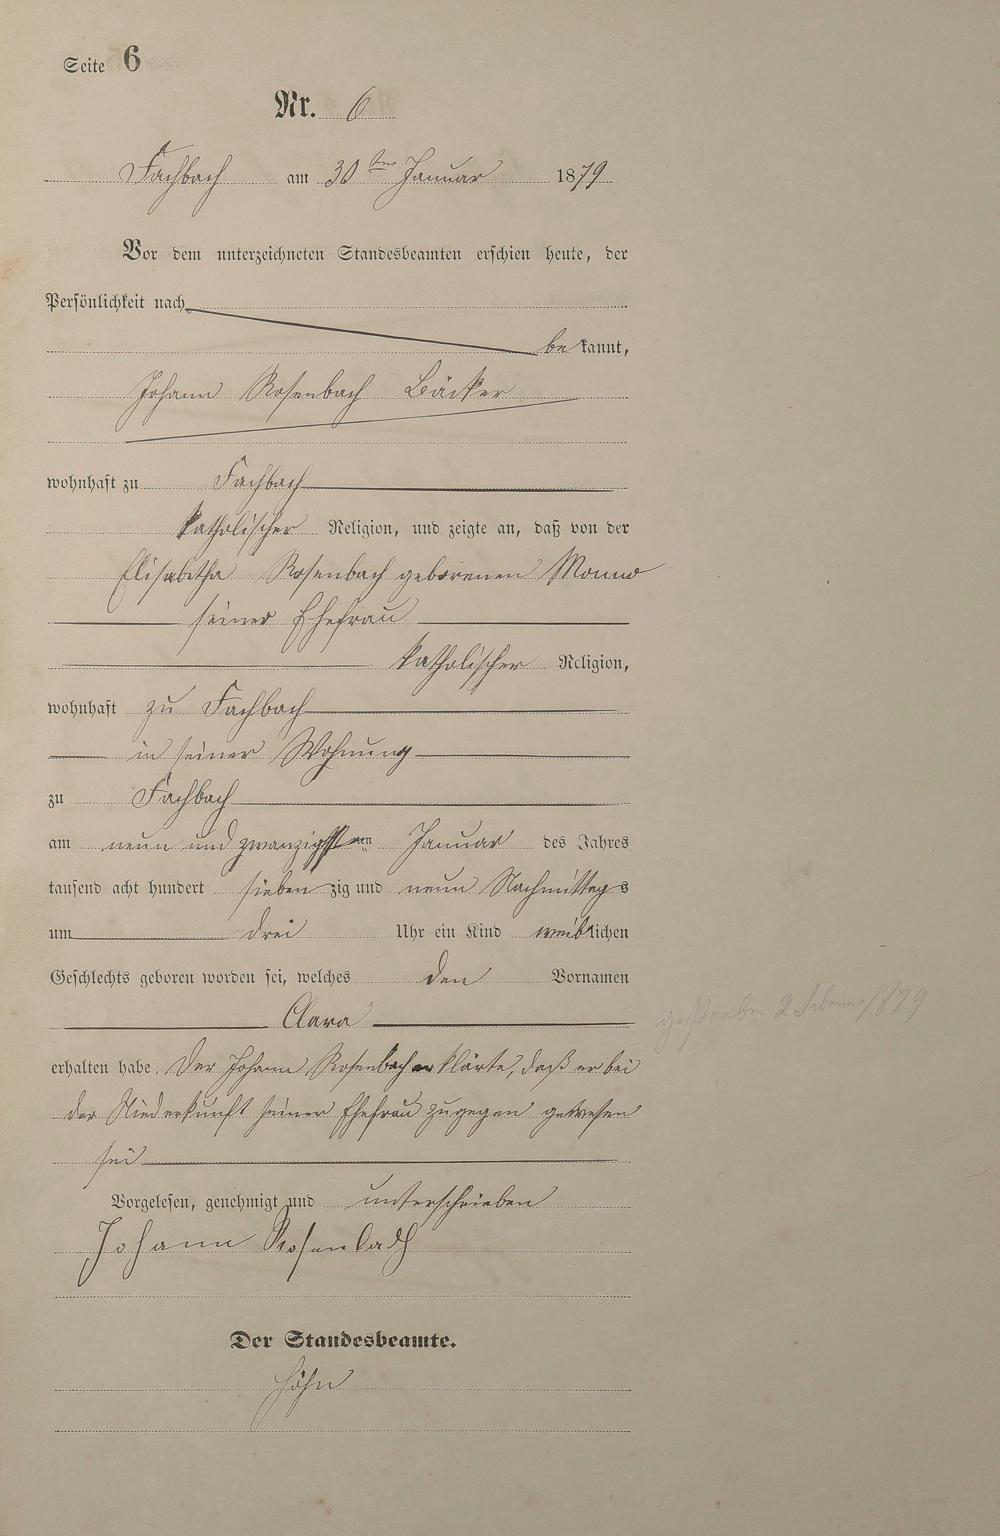 Seite 6
Nr. 6
Fachbach am 30ten Januar 1879
Vor dem unterzeichneten Standesbeamten erschien heute, der
Persönlichkeit nach
bekannt,
Johann Rosenbach Bäcker
wohnhaft zu Fachbach
katholischer Religion, und zeigte an, daß von der
Elisabetha Rosenbach geborenen
seiner Ehefrau
katholischer Religion,
wohnhaft zu Fachbach
in seiner Wohnung
zu Fachbach
am neun und zwanzigsten Januar des Jahres
tausend acht hundert siebenzig und neun Nachmittags
um drei Uhr ein Kind weiblichen
Geschlechts geboren worden sei, welches den Vornamen
Clara
gestorben 2 Februar 1879
erhalten habe. Der Johann Rosenbach erklärte, daß er bei
der Niederkunft seiner Ehefrau zugegen gewesen
sei
Vorgelesen, genehmigt und unterschrieben
Johann Rosenbach
Der Standesbeamte.
Höhn